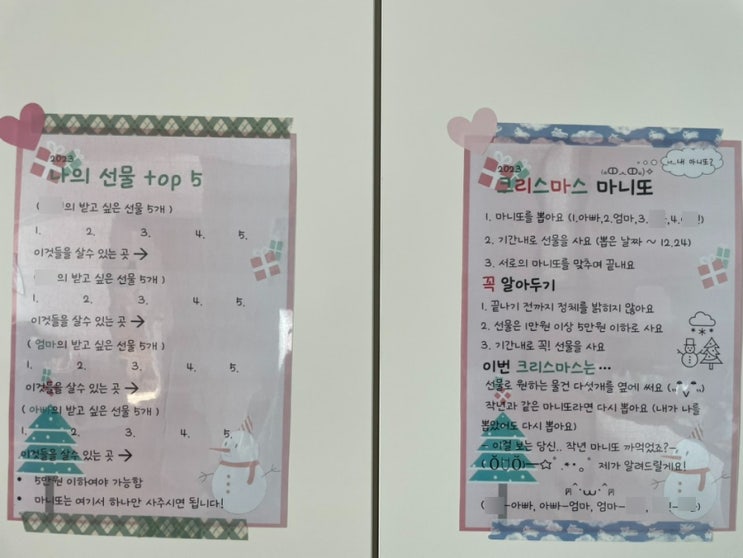 2023
나의 선물 top 5
( 의 받고 싶은 선물 5개 )
1. 2. 3. 4. 5.
이것들을 살수 있는 곳 →
의 받고 싶은 선물 5개 )
1. 2. 3. 4. 5.
이것들을 살수 있는 곳 →
( 엄마의 받고 싶은 선물 5개 )
1. 2. 3. 4. 5.
이것들을 살수 있는 곳 →
( 아빠의 받고 싶은 선물 5개 )
1. 2. 3. 4. 5.
이것들을 살수 있는 곳 →
• 5만원 이하여야 가능함
• 마니또는 여기서 하나만 사주시면 됩니다!
2023
크리스마스 마니또
내 마니또?
1. 마니또를 뽑아요 (1.아빠,2.엄마,3. ,4. !)
2. 기간내로 선물을 사요 (뽑은 날짜 ~ 12.24)
3. 서로의 마니또를 맞추며 끝내요
꼭 알아두기
1. 끝나기 전까지 정체를 밝히지 않아요
2. 선물은 1만원 이상 5만원 이하로 사요
3. 기간내로 꼭! 선물을 사요
이번 크리스마스는…
선물로 원하는 물건 다섯개를 옆에 써요
작년과 같은 마니또라면 다시 뽑아요 (내가 나를
뽑았어도 다시 뽑아요)
이걸 보는 당신.. 작년 마니또 까먹었죠?
제가 알려드릴게요!
( -아빠, 아빠-엄마, 엄마- , !- )